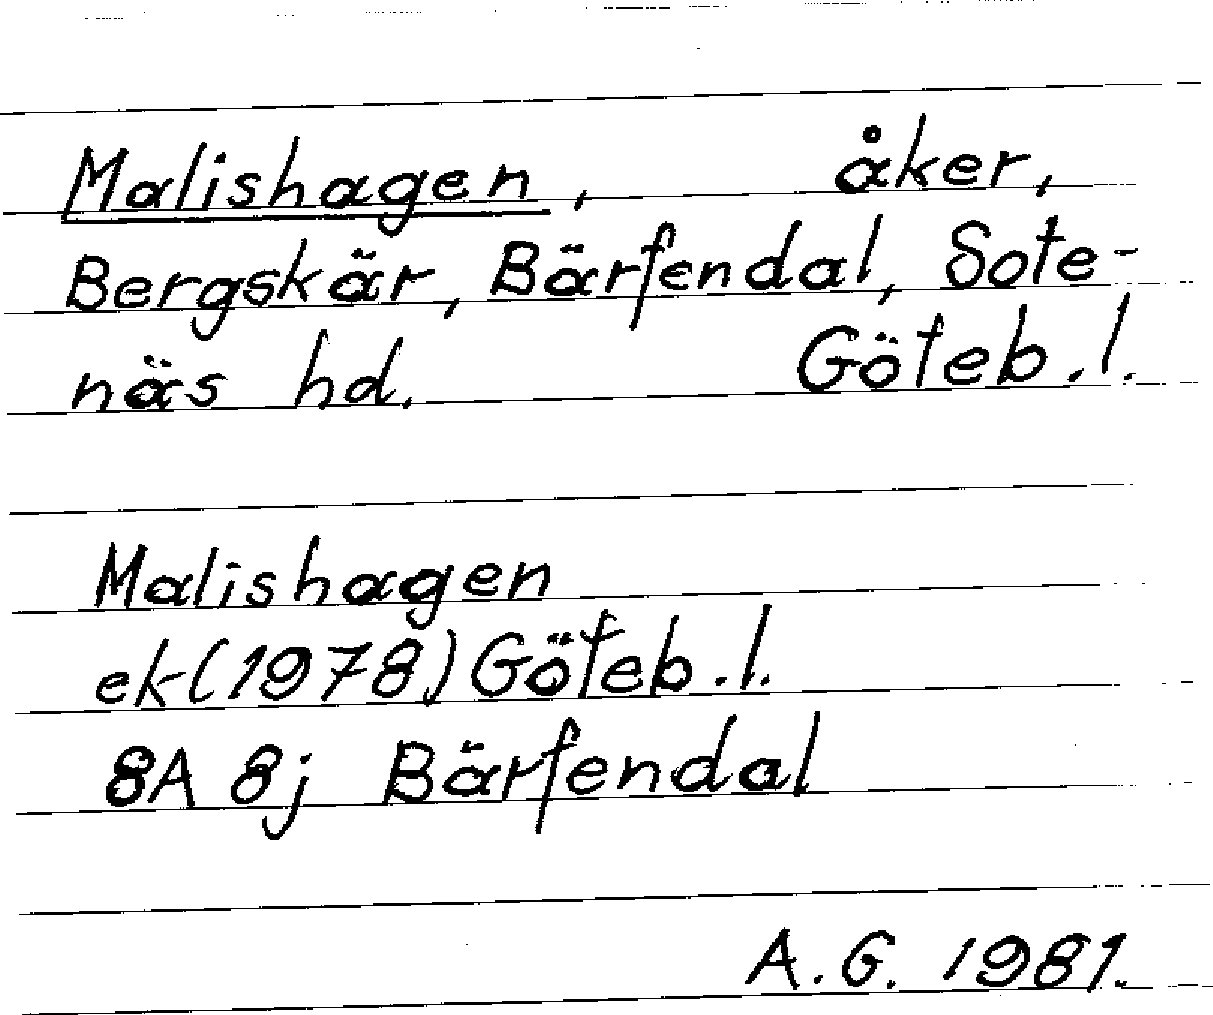 Malishagen, åker,
Bergskär, Bärfendal, Sote-
näs hd. Göteb.l.
Malishagen
ek(1978) Göteb.l.
8A 8j Bärfendal
A.G. 1981.